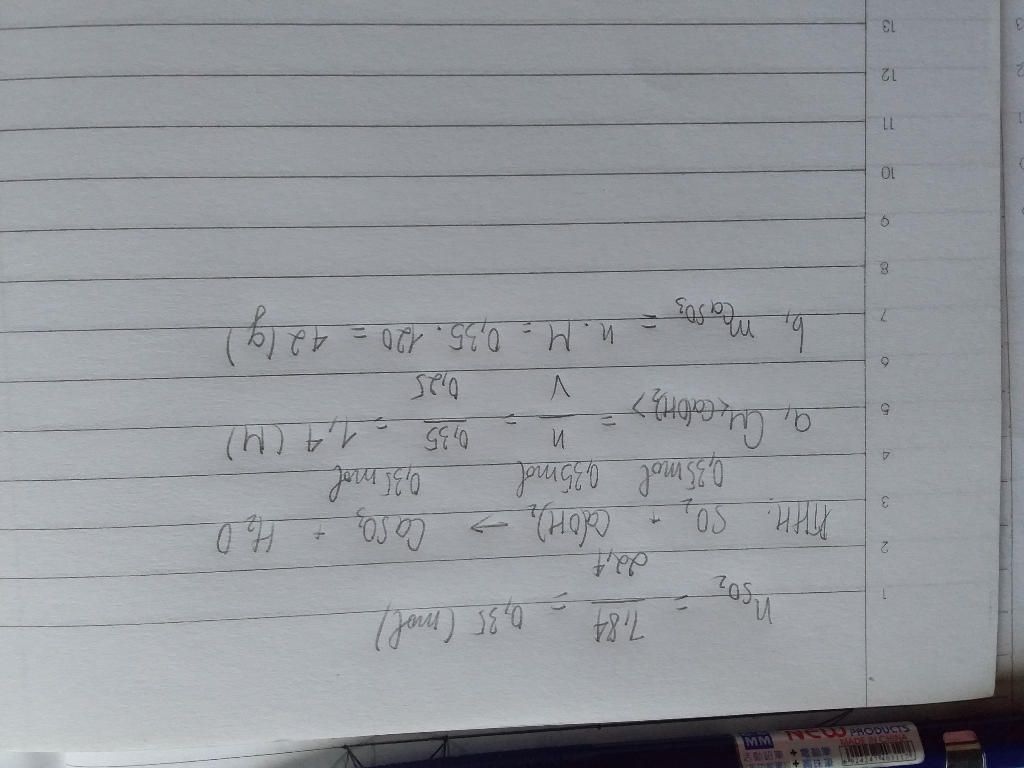 nSO₂ = 7,84/22,4 = 0,35 (mol)
PTHH: SO₂ + Ca(OH)₂ → CaSO₃ + H₂O
0,35mol 0,35mol 0,35mol
a, CM<Ca(OH)₂> = n/V = 0,35/0,25 = 1,4 (M)
b, mCaSO₃ = n.M = 0,35.120 = 42(g)
1
2
3
4
5
6
7
8
9
10
11
12
13
MM
NEW PRODUCTS